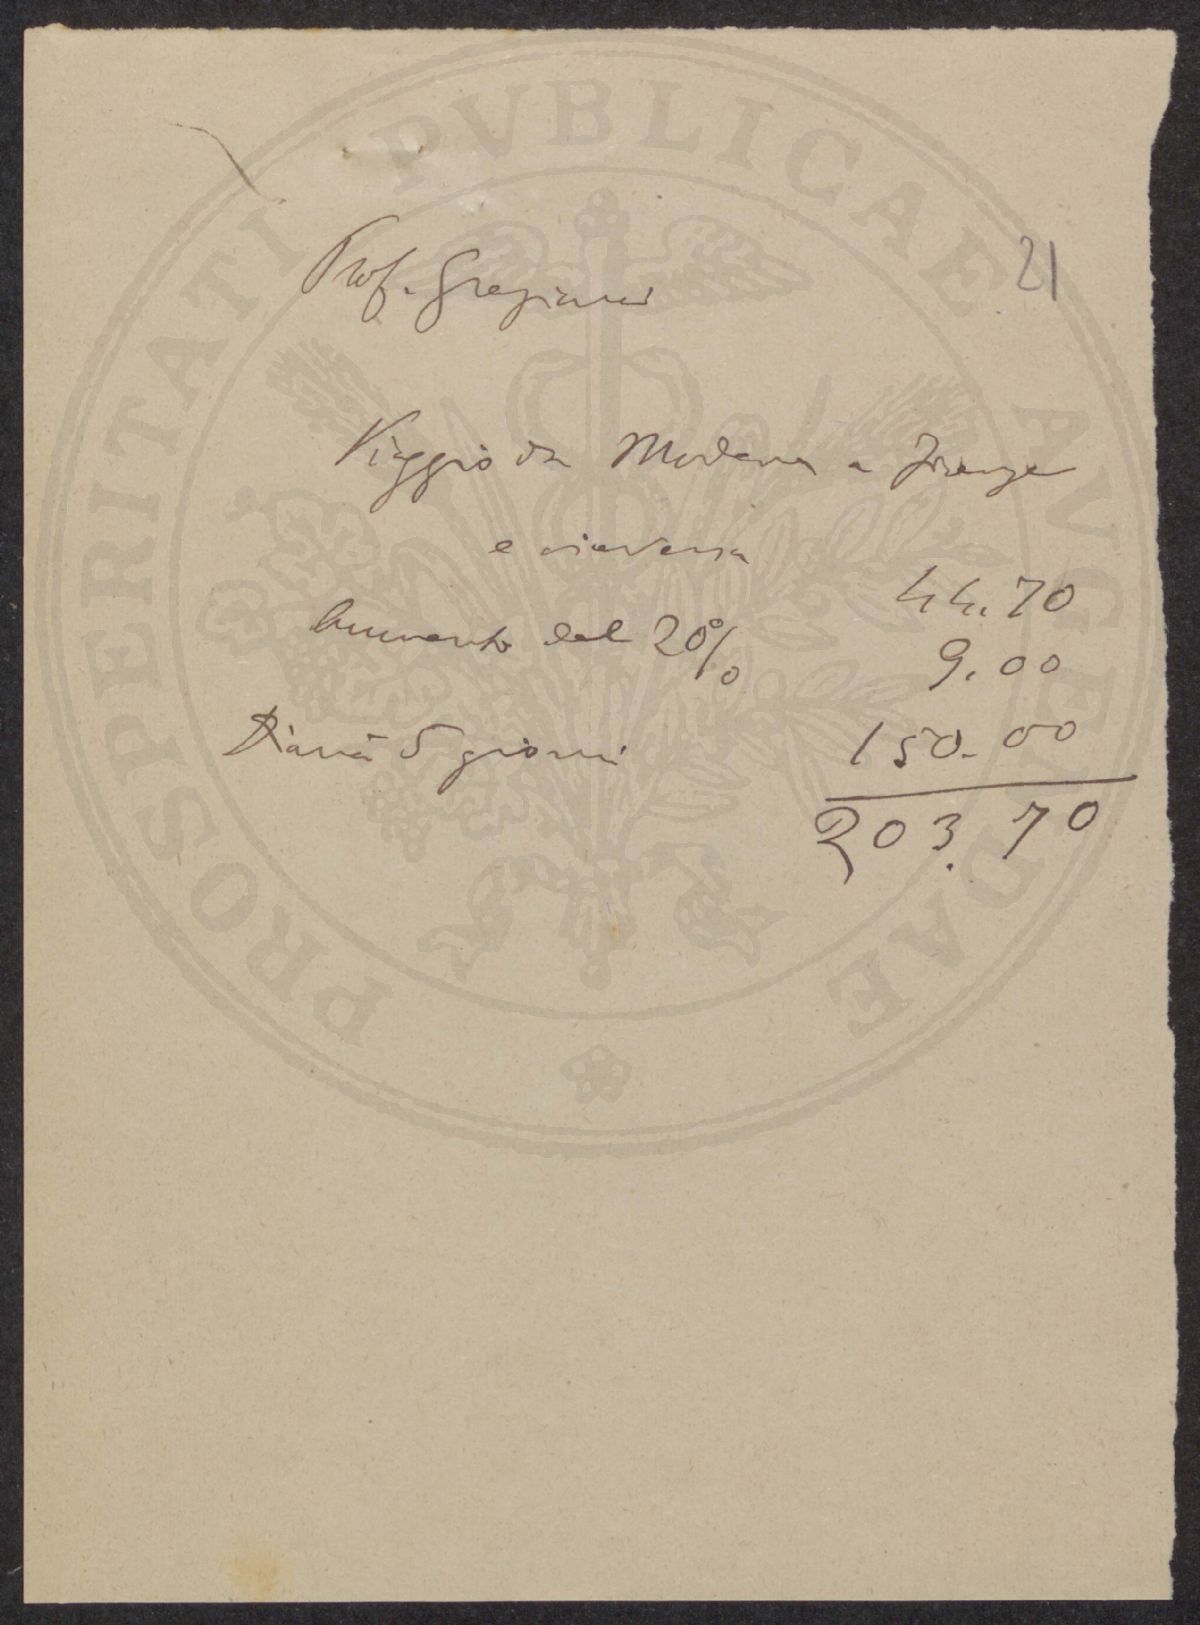 21
Prof. Graziani
Viaggio da Modena a Firenze
e viceversa 44.70
Aumento del 20% 9.00
Diaria 5 giorni 150.00
203.70
PROSPERITATI PVBLICAE AVGENDAE